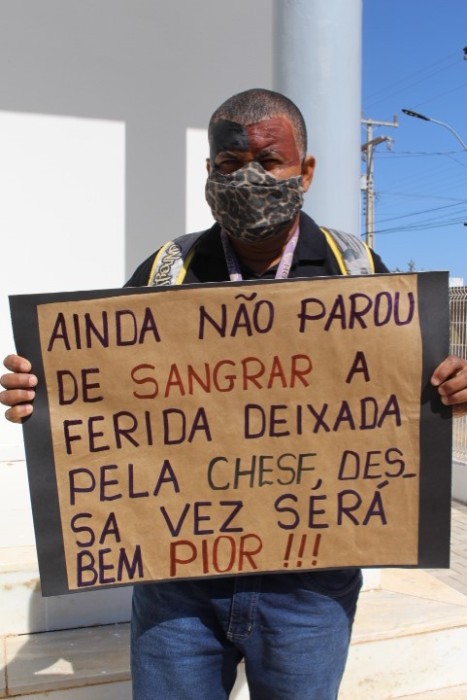 AINDA NÃO PAROU
DE SANGRAR A
FERIDA DEIXADA
PELA CHESF, DES_
SA VEZ SERÁ
BEM PIOR !!!